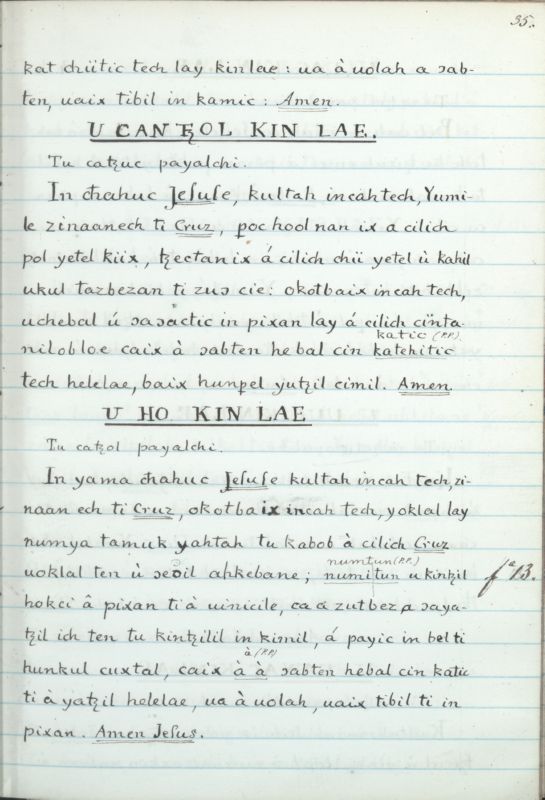 35.
kat chíitic tech lay kin lae: ua à uolah a ɔab-
ten, uaix tibil in kamic: Amen.
U CAN ꜩOL KIN LAE.
Tu caꜩuc payalchi.
In cħahuc Jesuse, kultah in cah tech, Yumi-
le zinaanech ti Cruz, p̵oc hool nan ix a cilich
pol yetel kiix, ꜩectan ix á cilich chíi yetel ù kahil
ukul tazbezan ti zuɔ cie: okotbaix in cah tech,
uchebal ú ɔaɔactic in pixan lay á cilich cinta-
katic (P.P.)
nilobloe caix à ɔabten he bal cin katehitic
tech helelae, baix hunp̵el yuꜩil cimil. Amen.
U HO. KIN LAE
Tu caꜩol payalchi.
In yama cħahuc Jesuse kultah in cah tech, zi-
naan ech ti Cruz, okotbaix in cah tech, yoklal lay
numya tamuk yahtah tu kabob à cilich Cruz
numtun (P.P.)
uoklal ten ù ɔeɔil ahkebane; numitun u kinꜩil
fª 13.
hokci â pixan ti à uinicile, ca a zutbez a ɔaya-
ꜩil ich ten tu kinꜩilil in kimil, á payic in bel ti
à (P.P)
hunkul cuxtal, caix à à ɔabten hebal cin katic
ti à yaꜩil helelae, ua à uolah, uaix tibil ti in
pixan. Amen Jesus.